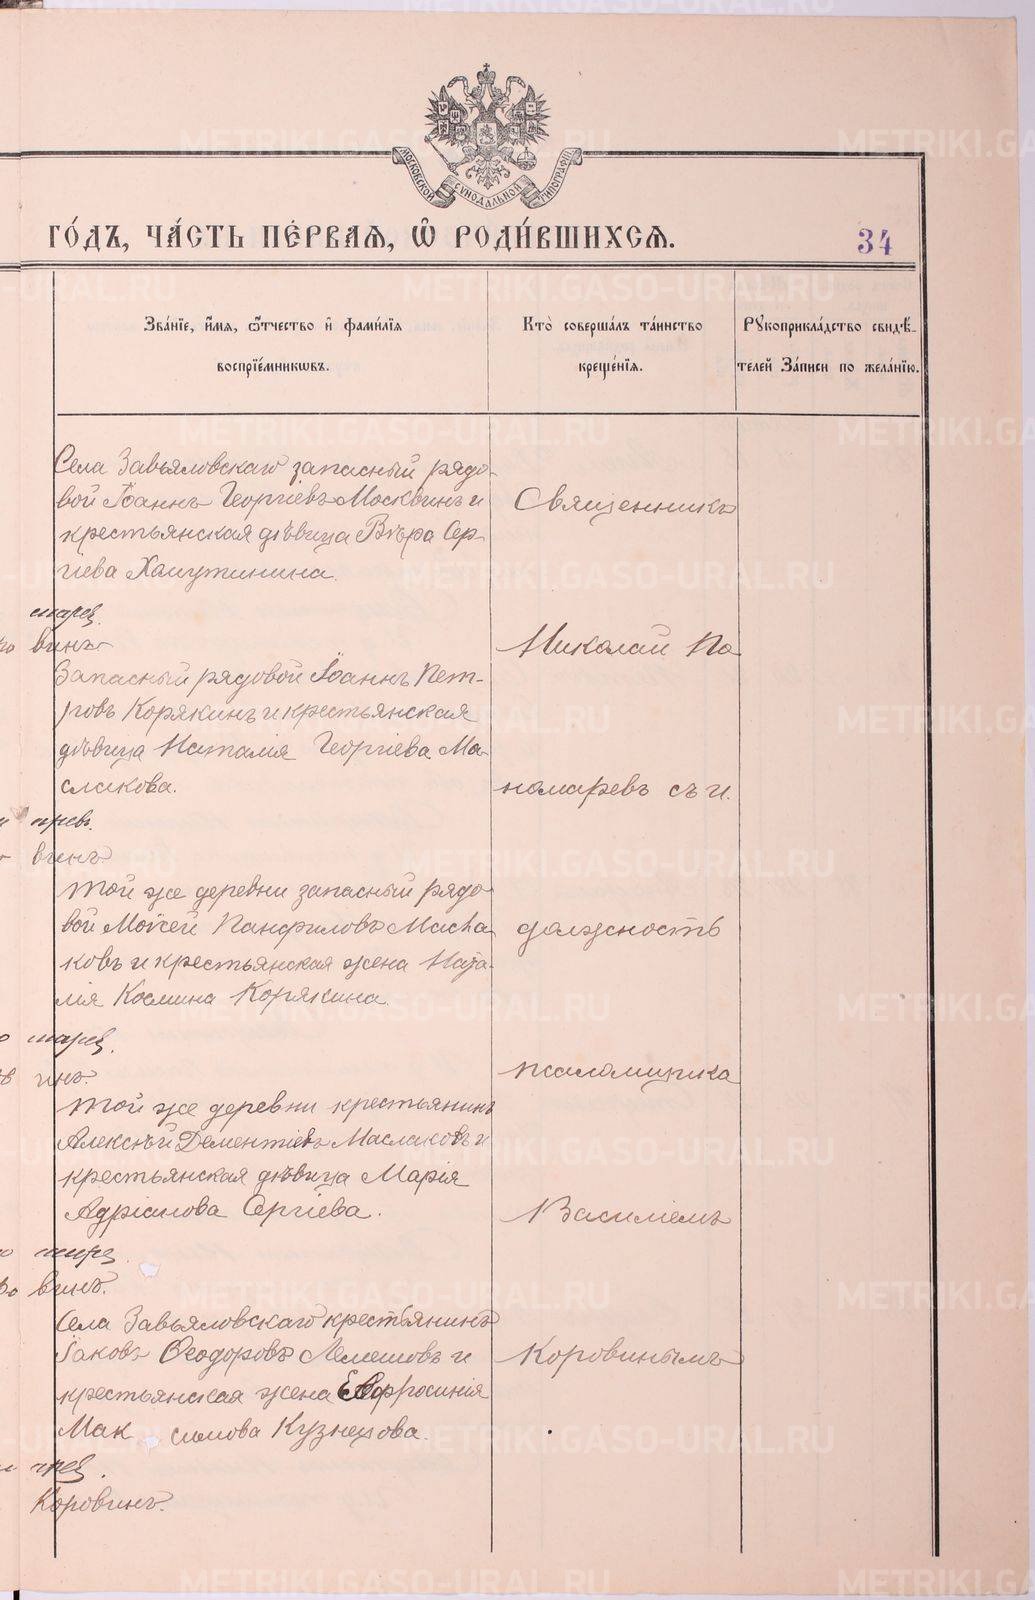 МОСКОВСКОЙ СУНОДАЛЬНОЙ ТИПОГРАФІИ
ГО́ДЪ, ЧА́СТЬ ПЕ́РВАѦ, Ѡ҆ РОДИ́ВШИХСѦ.
34
Зва́нїе, и҆́мѧ, ѻ҆́тчество и҆ фами́лїѧ
воспрїе́мникѡвъ.
Кто̀ соверша́лъ та́инство
креще́нїѧ.
Рꙋкоприкла́дство свидѣ́-
телей За́писи по жела́нїю.
Села Завьяловскаго запасный рядо-
вой Іоаннъ Георгіевъ Москвинъ и
крестьянская дѣвица Вѣра Сер-
гіева Хамутинина.
Священникъ
марев
винъ
Николай По
Запасный рядовой Іоаннъ Пет-
ровъ Корякинъ и крестьянская
дѣвица Наталія Георгіева Ма-
слакова.
номаревъ съ и.
винъ
Той же деревни запасный рядо-
вой Моѵсей Панфиловъ Масла
ковъ и крестьянская жена Ната-
лія Космина Корякина.
должность
марев.
инъ.
псаломщика
Той же деревни крестьянинъ
Алексѣй Дементіевъ Маслаковъ и
крестьянская дѣвица Марія
Адріанова Сергіева.
Василіемъ
винъ.
Села Завьяловскаго крестьянинъ
Іаковъ Ѳеодоровъ Лемешовъ и
крестьянская жена Евфросинія
Максимова Кузнецова.
Коровинымъ
Коровинъ.
METRIKI.GASO-URAL.RU